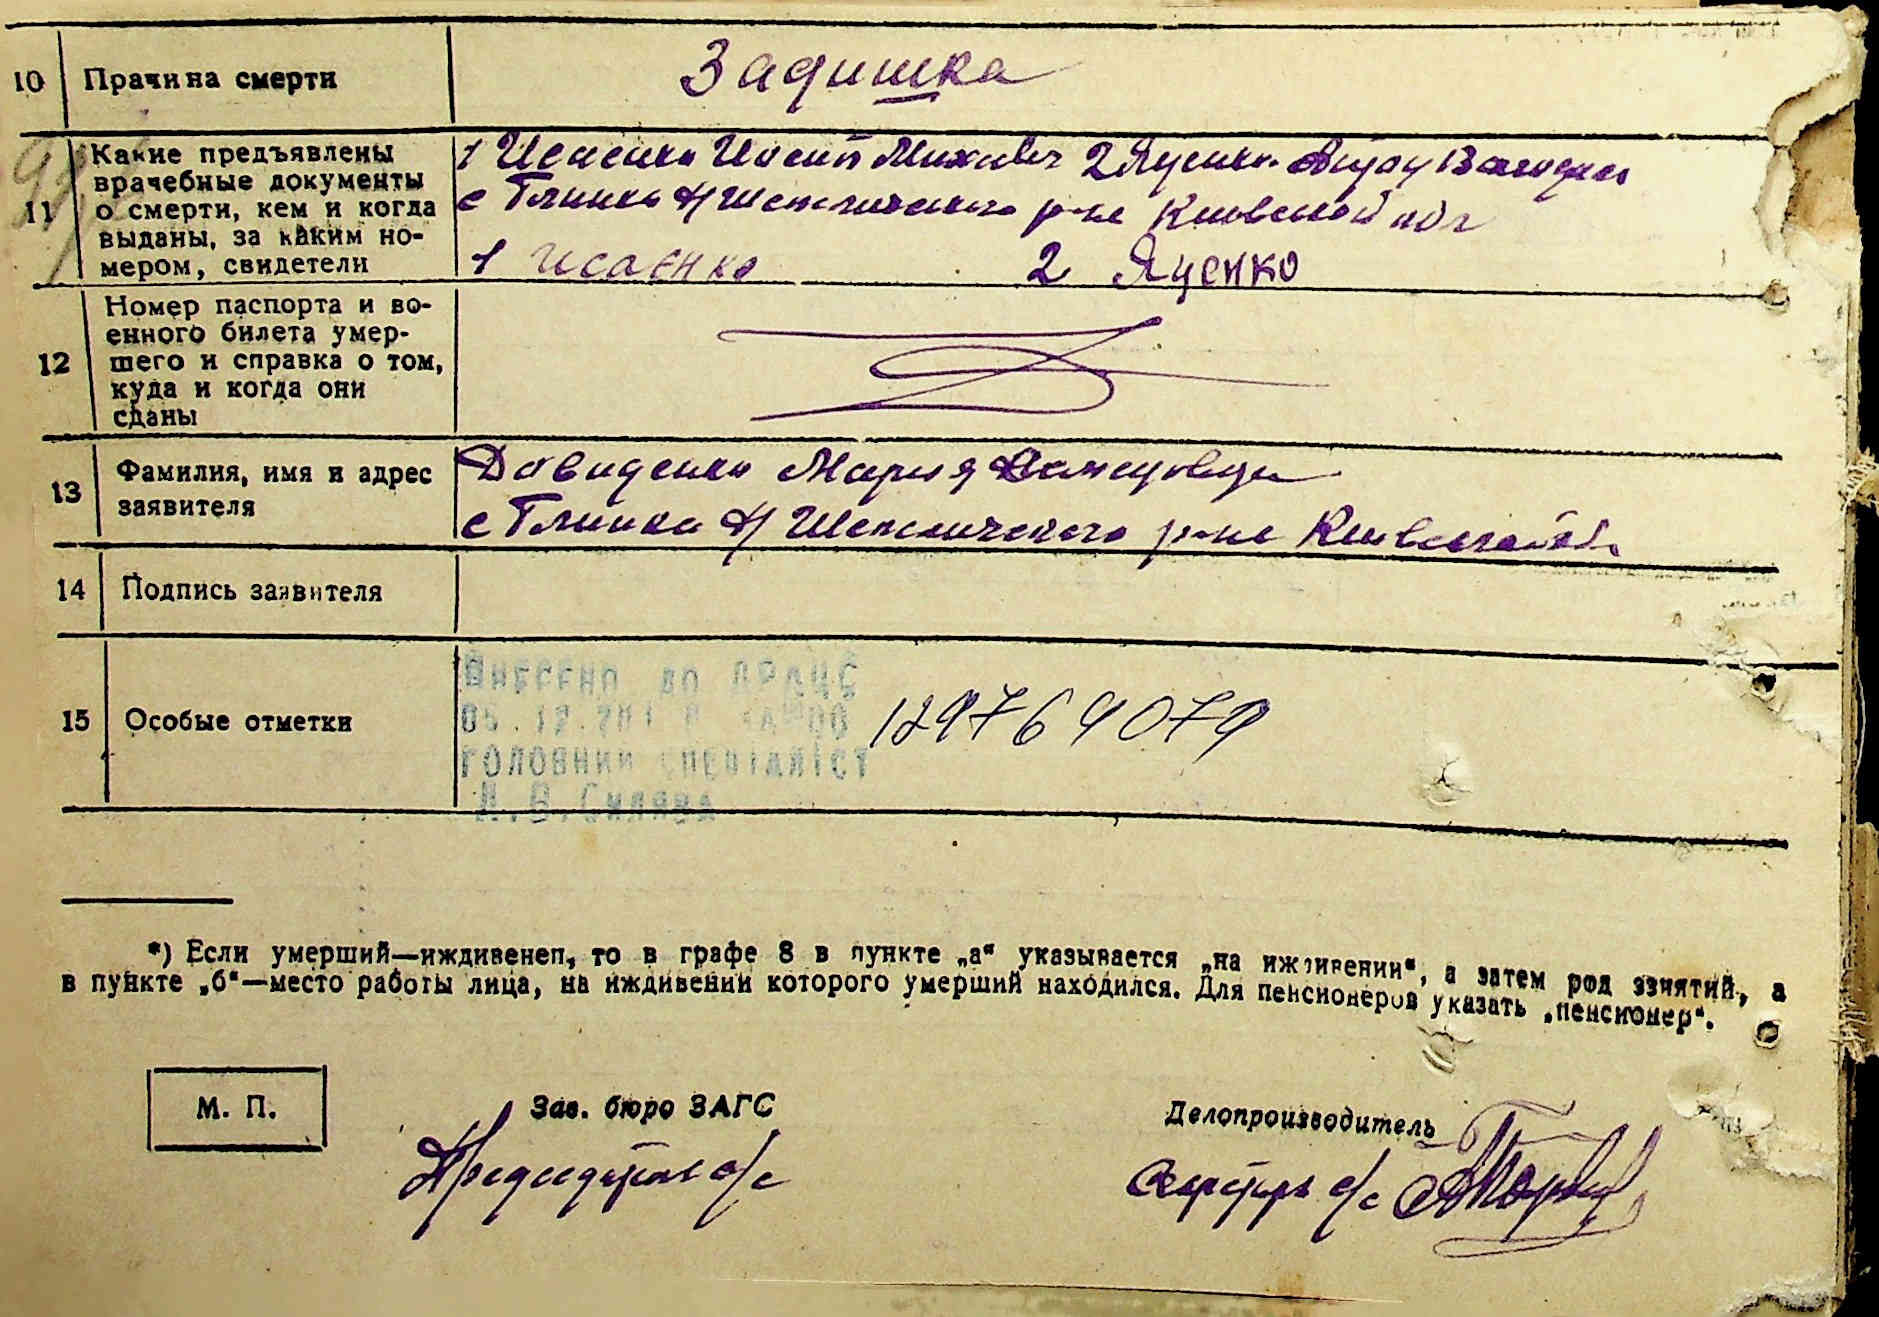 10 Причина смерти Задишка
11 Какие предъявлены врачебные документы о смерти, кем и когда выданы, за каким но-
мером, свидетели
1 Исаенко Иосип 2 Яценко
с Глинка Н/Шепеличского р-на Киевской обл
1 Исаенко 2 Яценко
12 Номер паспорта и во-
енного билета умер-
шего и справка о том,
куда и когда они
сданы
13 Фамилия, имя и адрес
заявителя
Давиденко Мария
с Глинка Н/Шепеличского р-на Киевской обл
14 Подпись заявителя
15 Особые отметки
Внесено до ДРАЦС
головний спеціаліст
*) Если умерший—иждивенец, то в графе 8 в пункте „а“ указывается „на иждивении“, а затем род занятий, а
в пункте „б“—место работы лица, на иждивении которого умерший находился. Для пенсионеров указать „пенсионер“.
М. П.
Зав. бюро ЗАГС
Делопроизводитель
Председатель с/с
Секретарь с/с